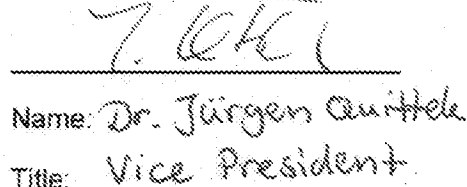 Name: Dr. Jürgen Quittek
Title: Vice President